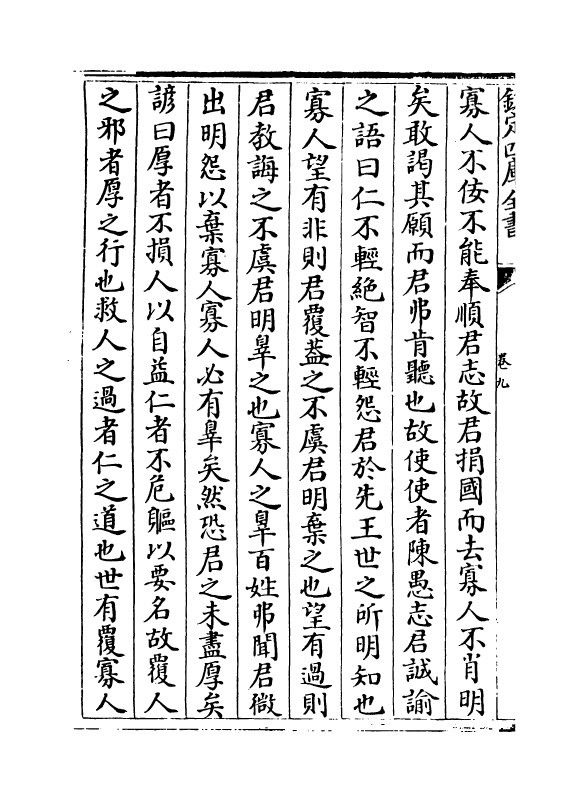 欽定四庫全書
卷九
寡人不佞不能奉順君志故君捐國而去寡人不肖明
矣敢謁其願而君弗肯聽也故使使者陳愚志君誠諭
之語曰仁不輕絶智不輕怨君於先王世之所明知也
寡人望有非則君覆葢之不虞君明棄之也望有過則
君教誨之不虞君明辠之也寡人之辠百姓弗聞君微
出明怨以棄寡人寡人必有辠矣然恐君之未盡厚矣
諺曰厚者不損人以自益仁者不危軀以要名故覆人
之邪者厚之行也救人之過者仁之道也世有覆寡人